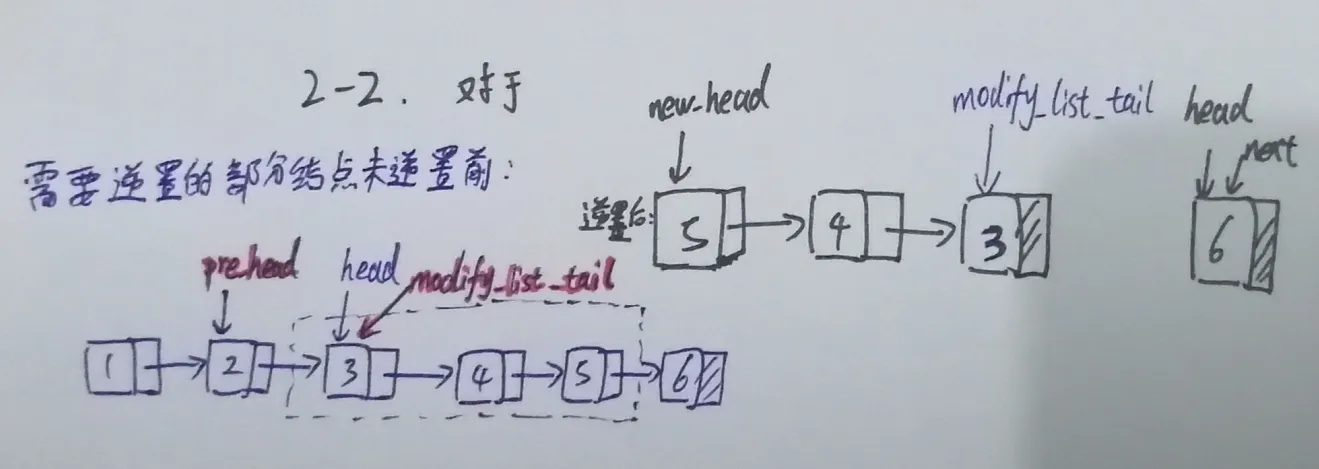 2-2. 对于
需要逆置的部分结点未逆置前:
pre_head head modify_list_tail
1 2 3 4 5 6
new_head modify_list_tail head
next
逆置后: 5 4 3 6